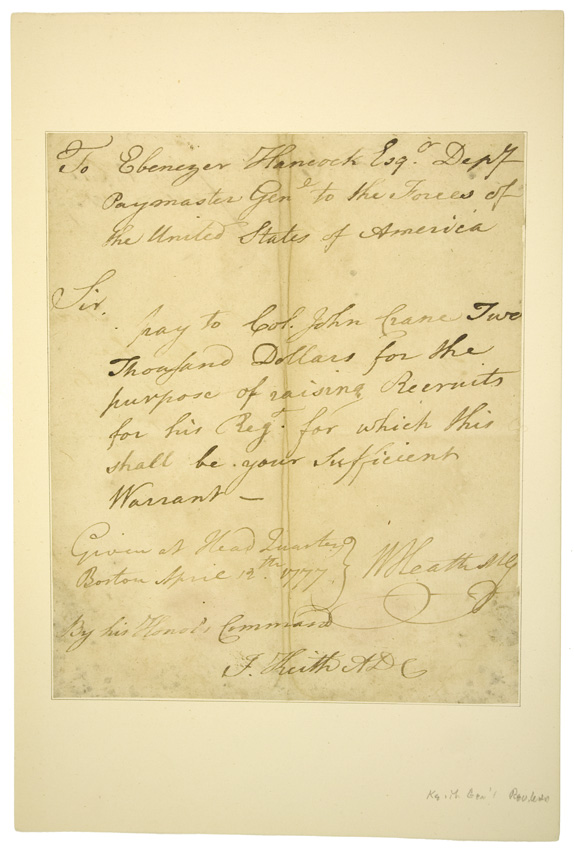 To Ebenezer Hancock Esqr. Depy
Paymaster Genl to the Forces of
the United States of America
Sir.
pay to Col. John Crane Two
Thousand Dollars for the
purpose of raising Recruits
for his Regt. for which this
shall be your sufficient
Warrant —
Given at Head Quarters
Boston April 12th. 1777.
W Heath M G
By his Honors Command
J. Keith A D C